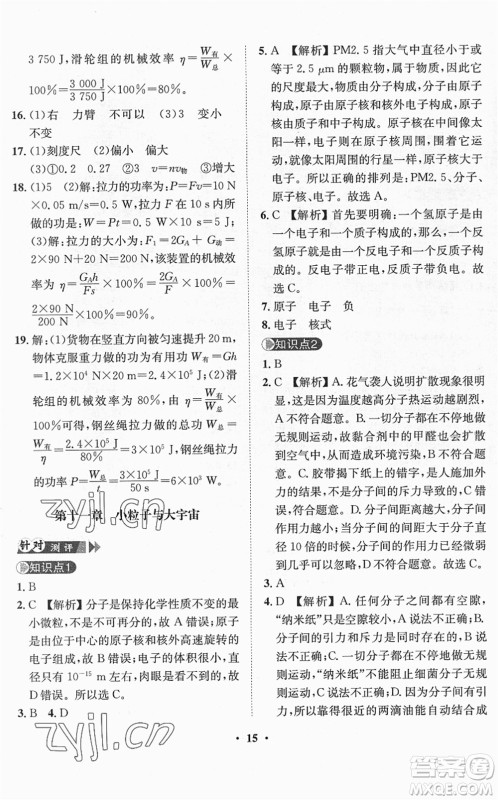 3 750 J,滑轮组的机械效率 η=W有/W总×
100%=3 000 J/3 750 J×100%=80%
16. (1)右 力臂 不可以 (3)3 变小
不变
17. (1)刻度尺 (2)偏小 偏大
(3)①0.2 0.27 ②v=nv物 ③增大
18. (1)5 (2)解:拉力的功率为:P=Fv=10 N
×0.05 m/s=0.5 W,拉力所做的功为:
W=Pt=0.5 W×10 s=5 J (3)解:缓慢拉
动时,所用的拉力为:F1=2GA/F=
2×90 N+20 N=20 N,该装置的效率为:
η=GAh/Fs×100%=2GA/F×100%=
2×90 N/200 N×100%=90%
19. 解:(1)货物在竖直方向被匀速提升 20 m,
物体克服重力做的有用功:W有=Gh
=1.2×10⁴ N×20 m=2.4×10⁵ J (2)滑
轮组的机械效率为 80%,钢丝绳拉力做的
功:W总=W有/η=2.4×10⁵ J/80%=3×10⁵ J,钢丝绳
拉力的功率:P=W总/t=3×10⁵ J/50 s=6×10³ W
第十一章 小粒子与大宇宙
针对测评
知识点1
1. B
2. C 【解析】分子是保持化学性质不变的最
小微粒,故 A 错误;分子是由原子构成,原子
是由位于中心的原子核和核外高速旋转的
电子组成,故 B 错误,故 C 正确;分子的直
径只有 10⁻¹⁵ m,肉眼是看不到的,故 D 错
误。所以选 C。
3. B 4. D
5. A 【解析】PM2.5 指大气中直径小于或
等于 2.5 μm 的颗粒物,相对于构成物质
的尺度最大,物质由分子构成,分子由原子
构成,原子由原子核和核外电子构成,原子
由质子和中子构成,原子核在中间像太
阳一样,占原子质量的绝大部分,电子绕核
旋转,就像太阳周围的行星一样。所以尺度
由大到小正确的排列是:PM2.5、分子、电
子、原子核。所以选 A。
6. C 【解析】首先要明确:一个氢原子是由
一个质子和一个电子构成的,那么,一个
反氢原子就是由一个反质子和一个反电子
构成,反质子带负电,反电子带正电。所以
选 C。
7. 原子 电子 负
8. 电子 核式
知识点2
1. B
2. C 【解析】A. 花气袭人说明扩散现象很明
显,是因为温度越高分子热运动越剧烈,故
A 不符合题意;B. 一切分子都在不停地做
无规则运动,故黏合剂中的甲醛会扩散到
空气中,造成环境污染,故 B 不符合题意;
C. 胶带能揭下纸上的错字,是因为分子间
有引力,故 C 符合题意;D. 分子在不停地做
无规则运动,墨汁滴入水中,水变黑,故 D
不符合题意。
3. A
4. D 【解析】A. 任何分子之间都有空隙,
“纳米纸”也不例外,故 A 说法不正确;B. 分
子间的引力与斥力是同时存在的,故 B 说
法不正确;C. 一切分子都在永不停息地做
无规则运动,“纳米纸”的分子也不例外,故
C 说法不正确;D. 分子间存在相互作用的
引力,因此相遇的两滴油能自动结合成
• 15 •
zyjl.cn
zyjl.cn
答案圈
MXQE.COM